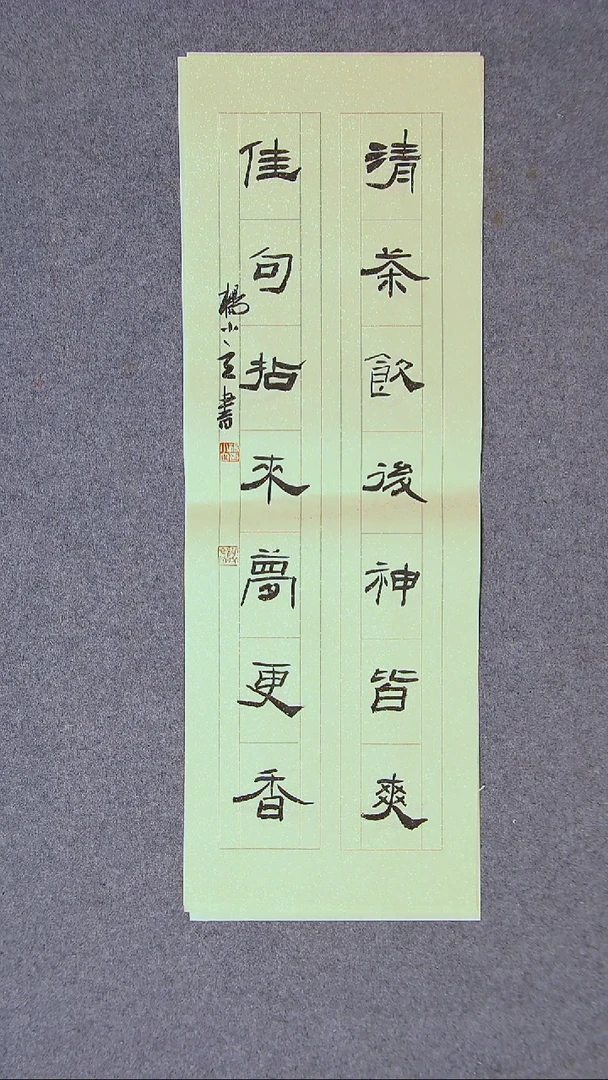 清茶飲後神皆爽
佳句拈來夢更香
楊小立書